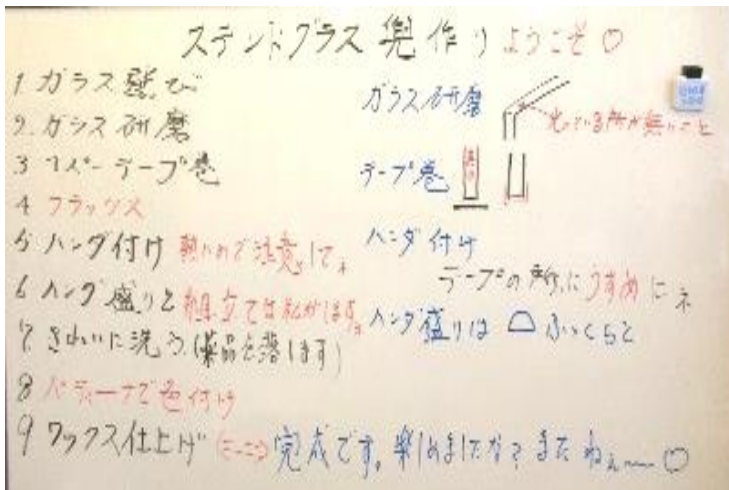 ステンドグラス兜作りようこそ♡
1 ガラス選び
2. ガラス研磨
3 コパーテープ巻
4 フラックス
5 ハンダ付け 熱いので注意してネ
6 ハンダ盛りと組立ては私がします
7. きれいに洗う。(薬品を落します)
8 パティーナで色付け
9 ワックス仕上げ 完成です。楽しめましたか?またねぇ〜♡
ガラス研磨
光っている所が無いこと
テープ巻
ハンダ付け
テープの所にうすめにネ
ハンダ盛りは ふっくらと